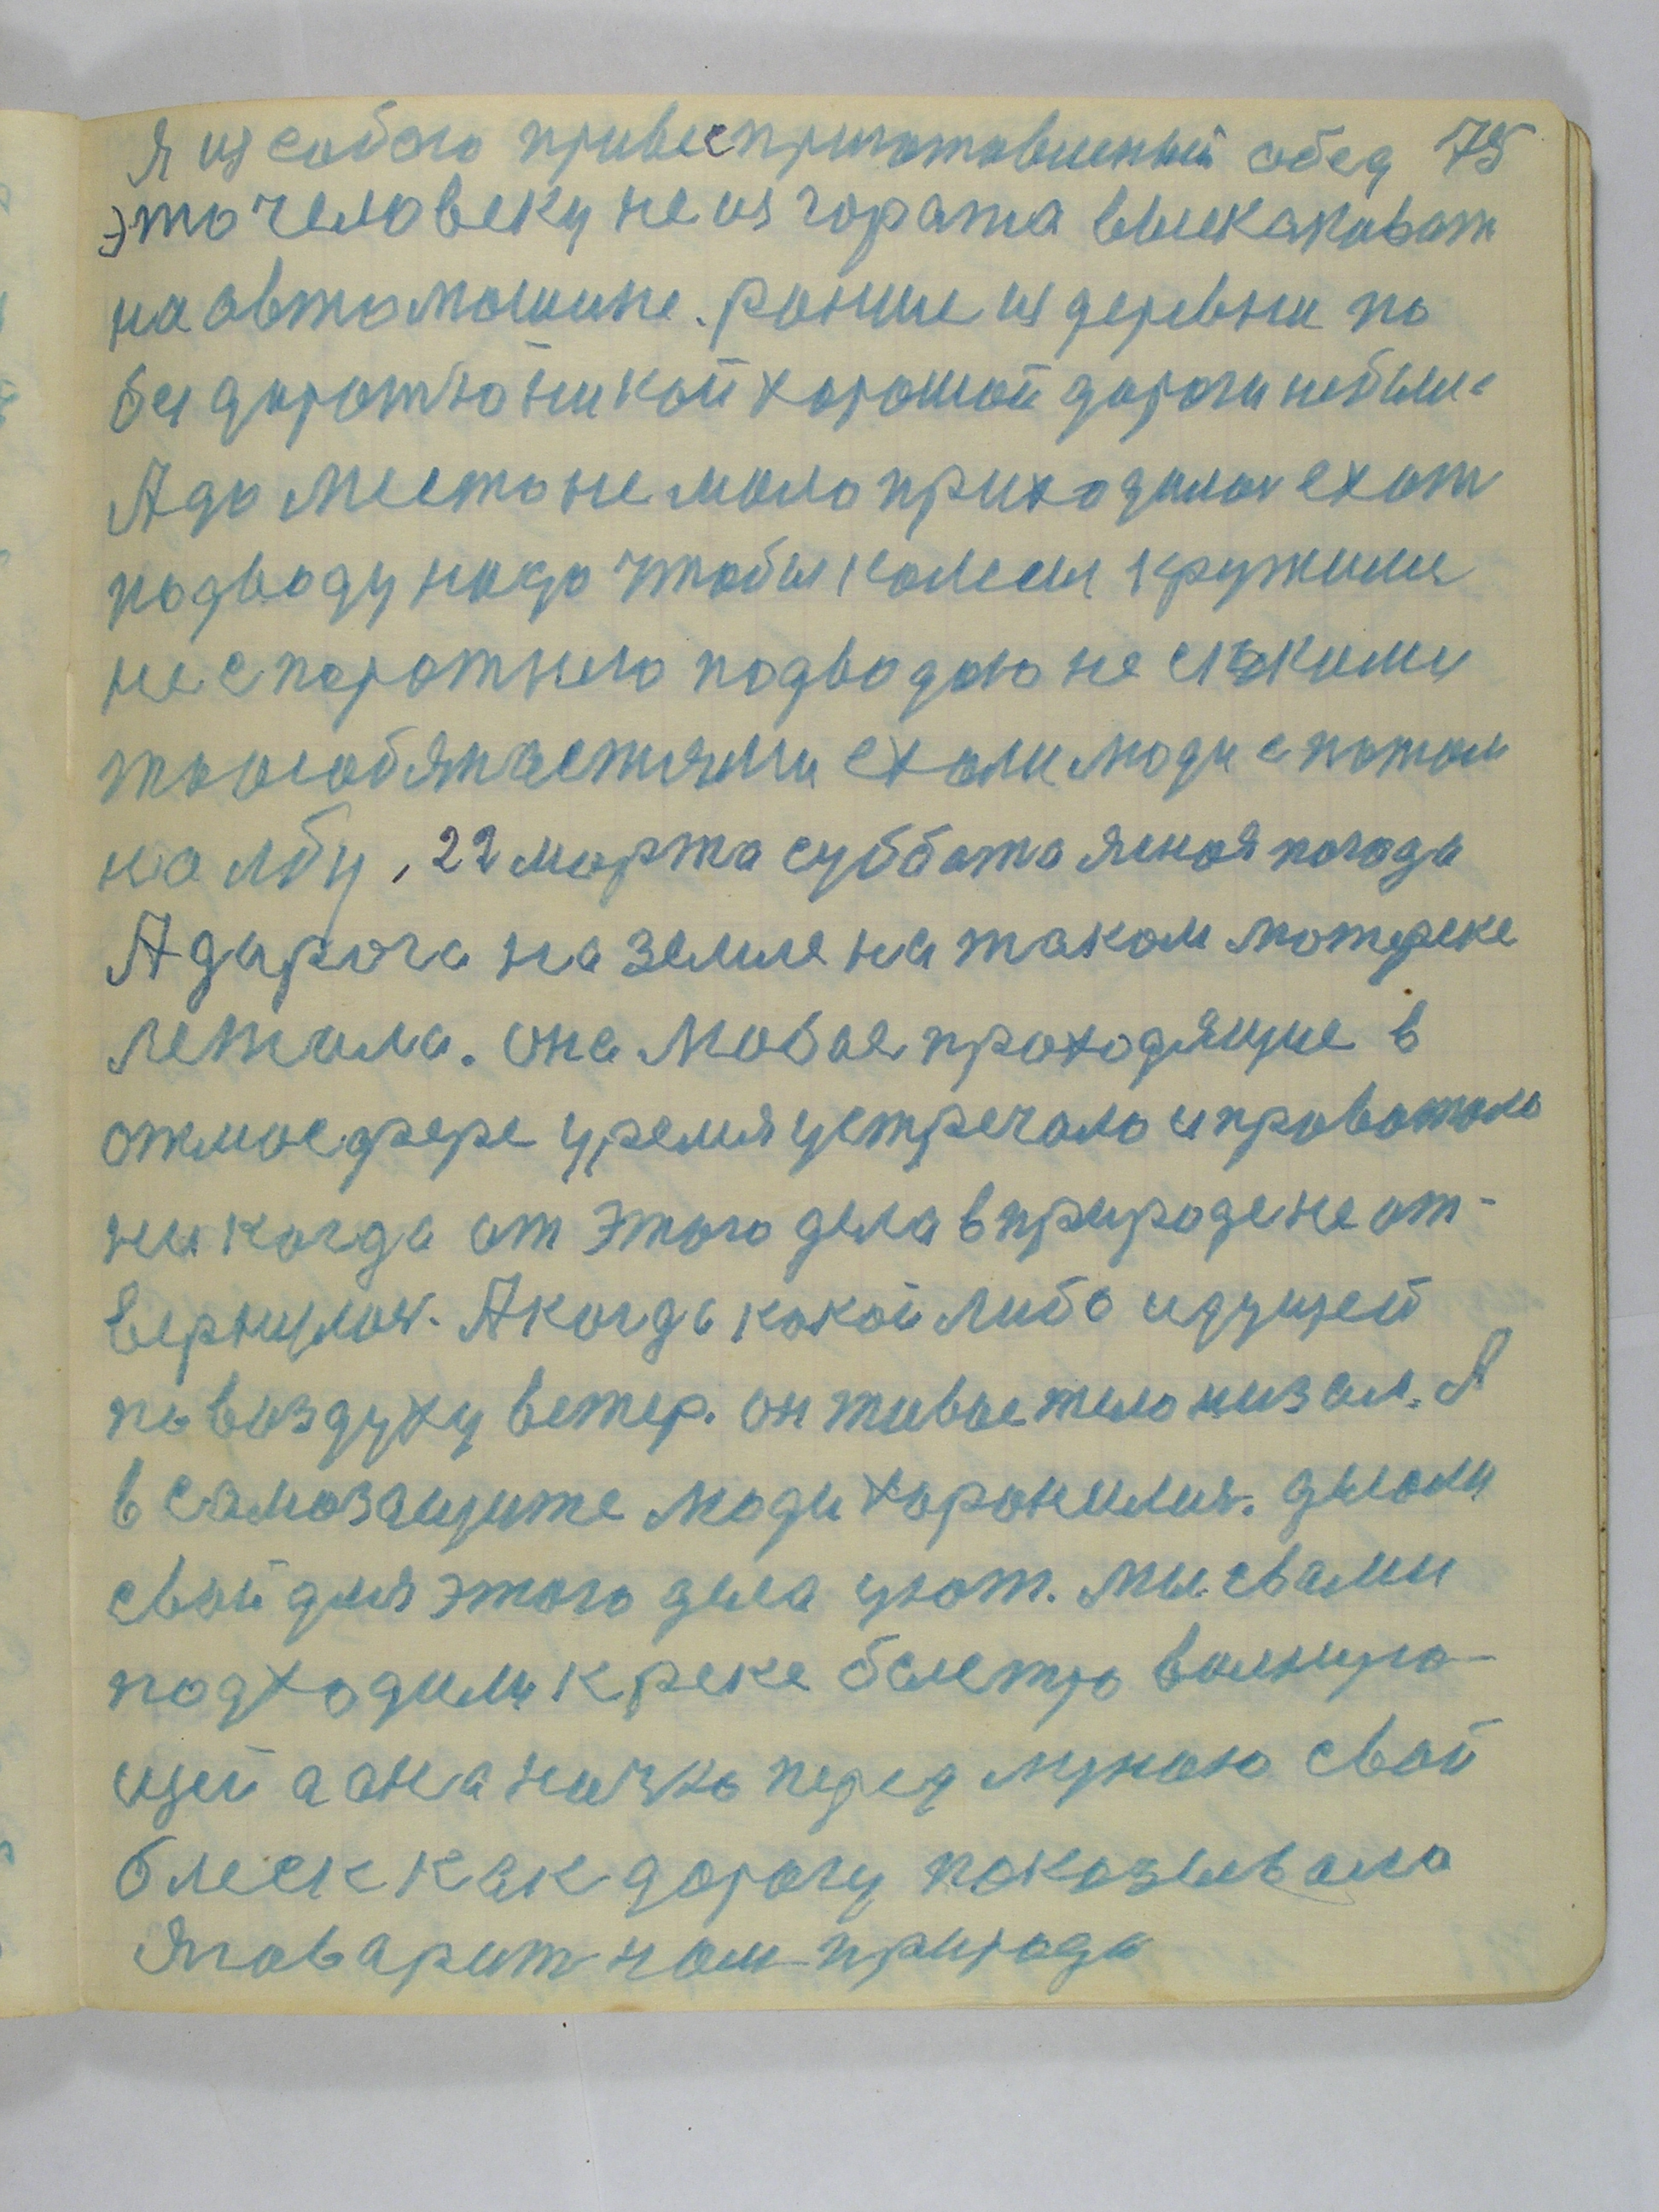 Я из собою привес приготовленый обед 75
это человеку не из гората выскаковат
на автомашине. раньше из деревни по
без даротью никой хорошой дароги небыли
А до место не мало приходилос ехат
подводу надо чтобы колеса кружили
не с паротнею подводою не сякими
 ехали люди с потом
на лбу, 22 марта суббата ясная погода
А дарога на земле на таком мотереке
лежала. она любые проходящие в
отмосфере уремя устречало и провожало
никогда от этого дела в природе не от-
вернулос. А когда какой либо идущей
по воздуху ветер. он живые тело низал. А
в самозащите люди харонилис. дилали
свой для этого дела уют. мы свами
подходили к реке быстро волную-
щей а она ничко перед луною свой
блеск как дорогу показывала
Яговарит нам природа